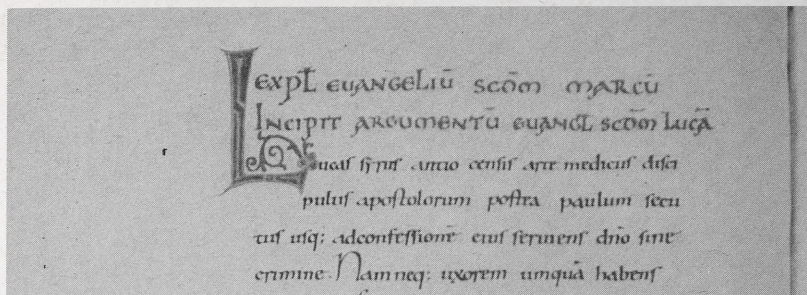 EXPL̅ EUANGELIŪ SCD̅M MARCŪ
INCIPIT ARGUMENTŪ EUANGL̅ SCD̅M LUCĀ
Lucas syrus antio censis arte medicus disci
pulus apostolorum postea paulum secu
tus usq; adconfessionē eius seruiens dn̅o sine
crimine. Nam neq; uxorem umquā habens